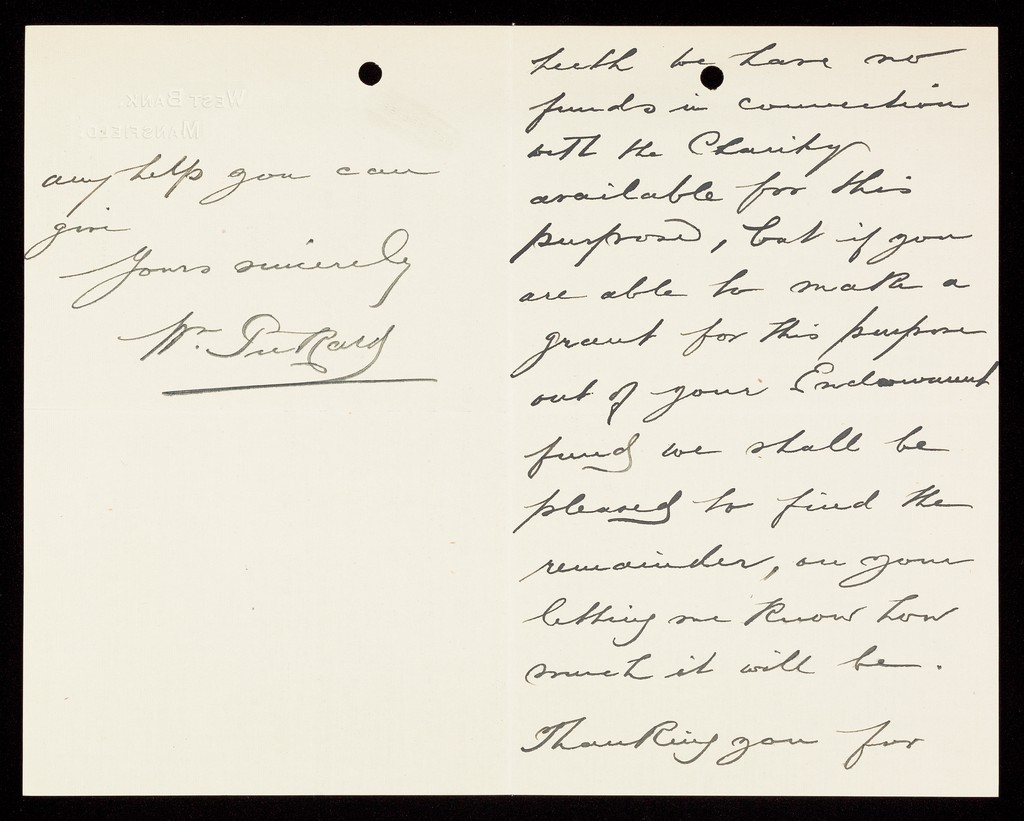 teeth we have no
funds in connection
with the Charity
available for this
purpose, but if you
are able to make a
grant for this purpose
out of your Endowment
fund we shall be
pleased to find the
remainder, on your
letting me know how
much it will be.
Thanking you for
WEST BANK,
MANSFIELD.
any help you can
give
Yours sincerely
Wm. Pickard